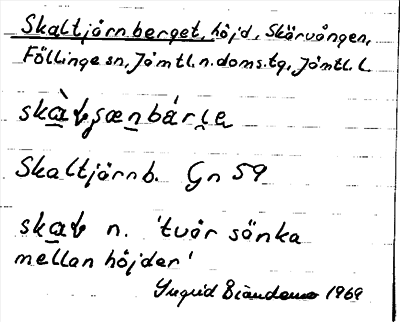 Skaltjärnberget, höjd, Skärvången,
Föllinge sn, Jämtl. n. doms.tg, Jämtl. l.
Skaltjärnb. Gn 59
n. 'tvär sänka
mellan höjder'
Ingrid 1969